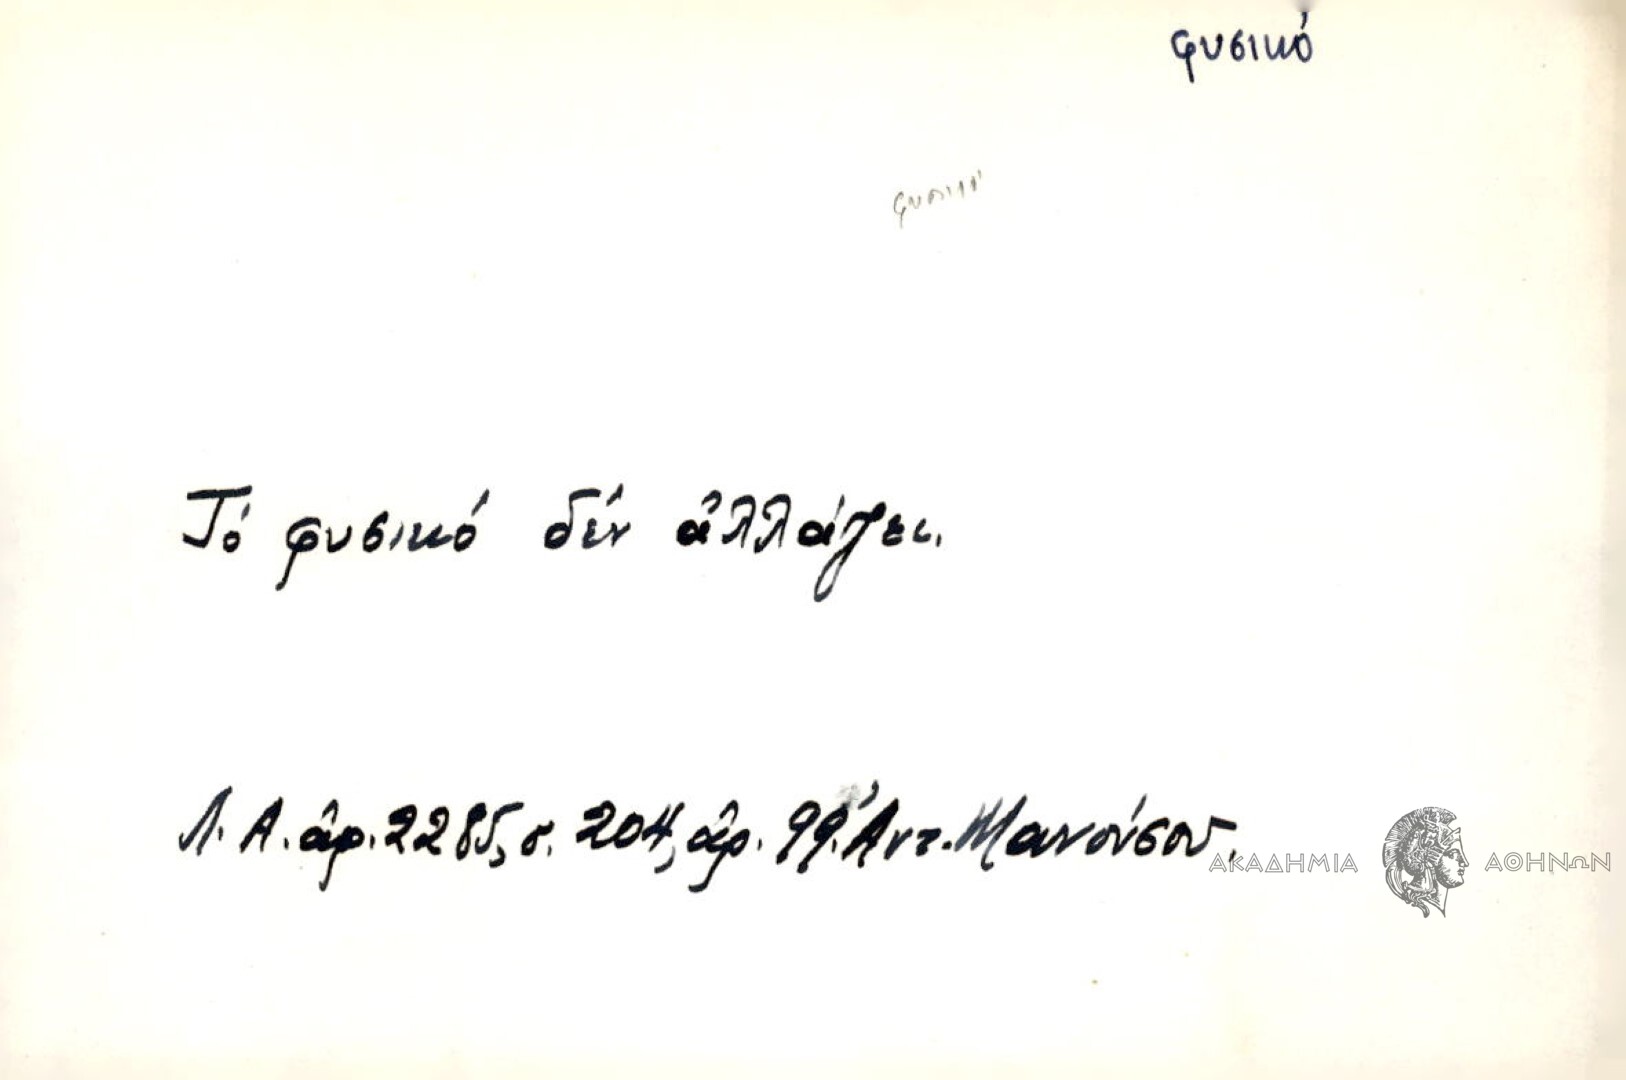 φυσικό
φυσικό
Τό φυσικό δέν ἀλλάζει.
Λ.Α. ἀρ. 2285, σ. 204, ἀρ. 99. Ἀντ. Μανούσου.
ΑΚΑΔΗΜΙΑ ΑΘΗΝΩΝ